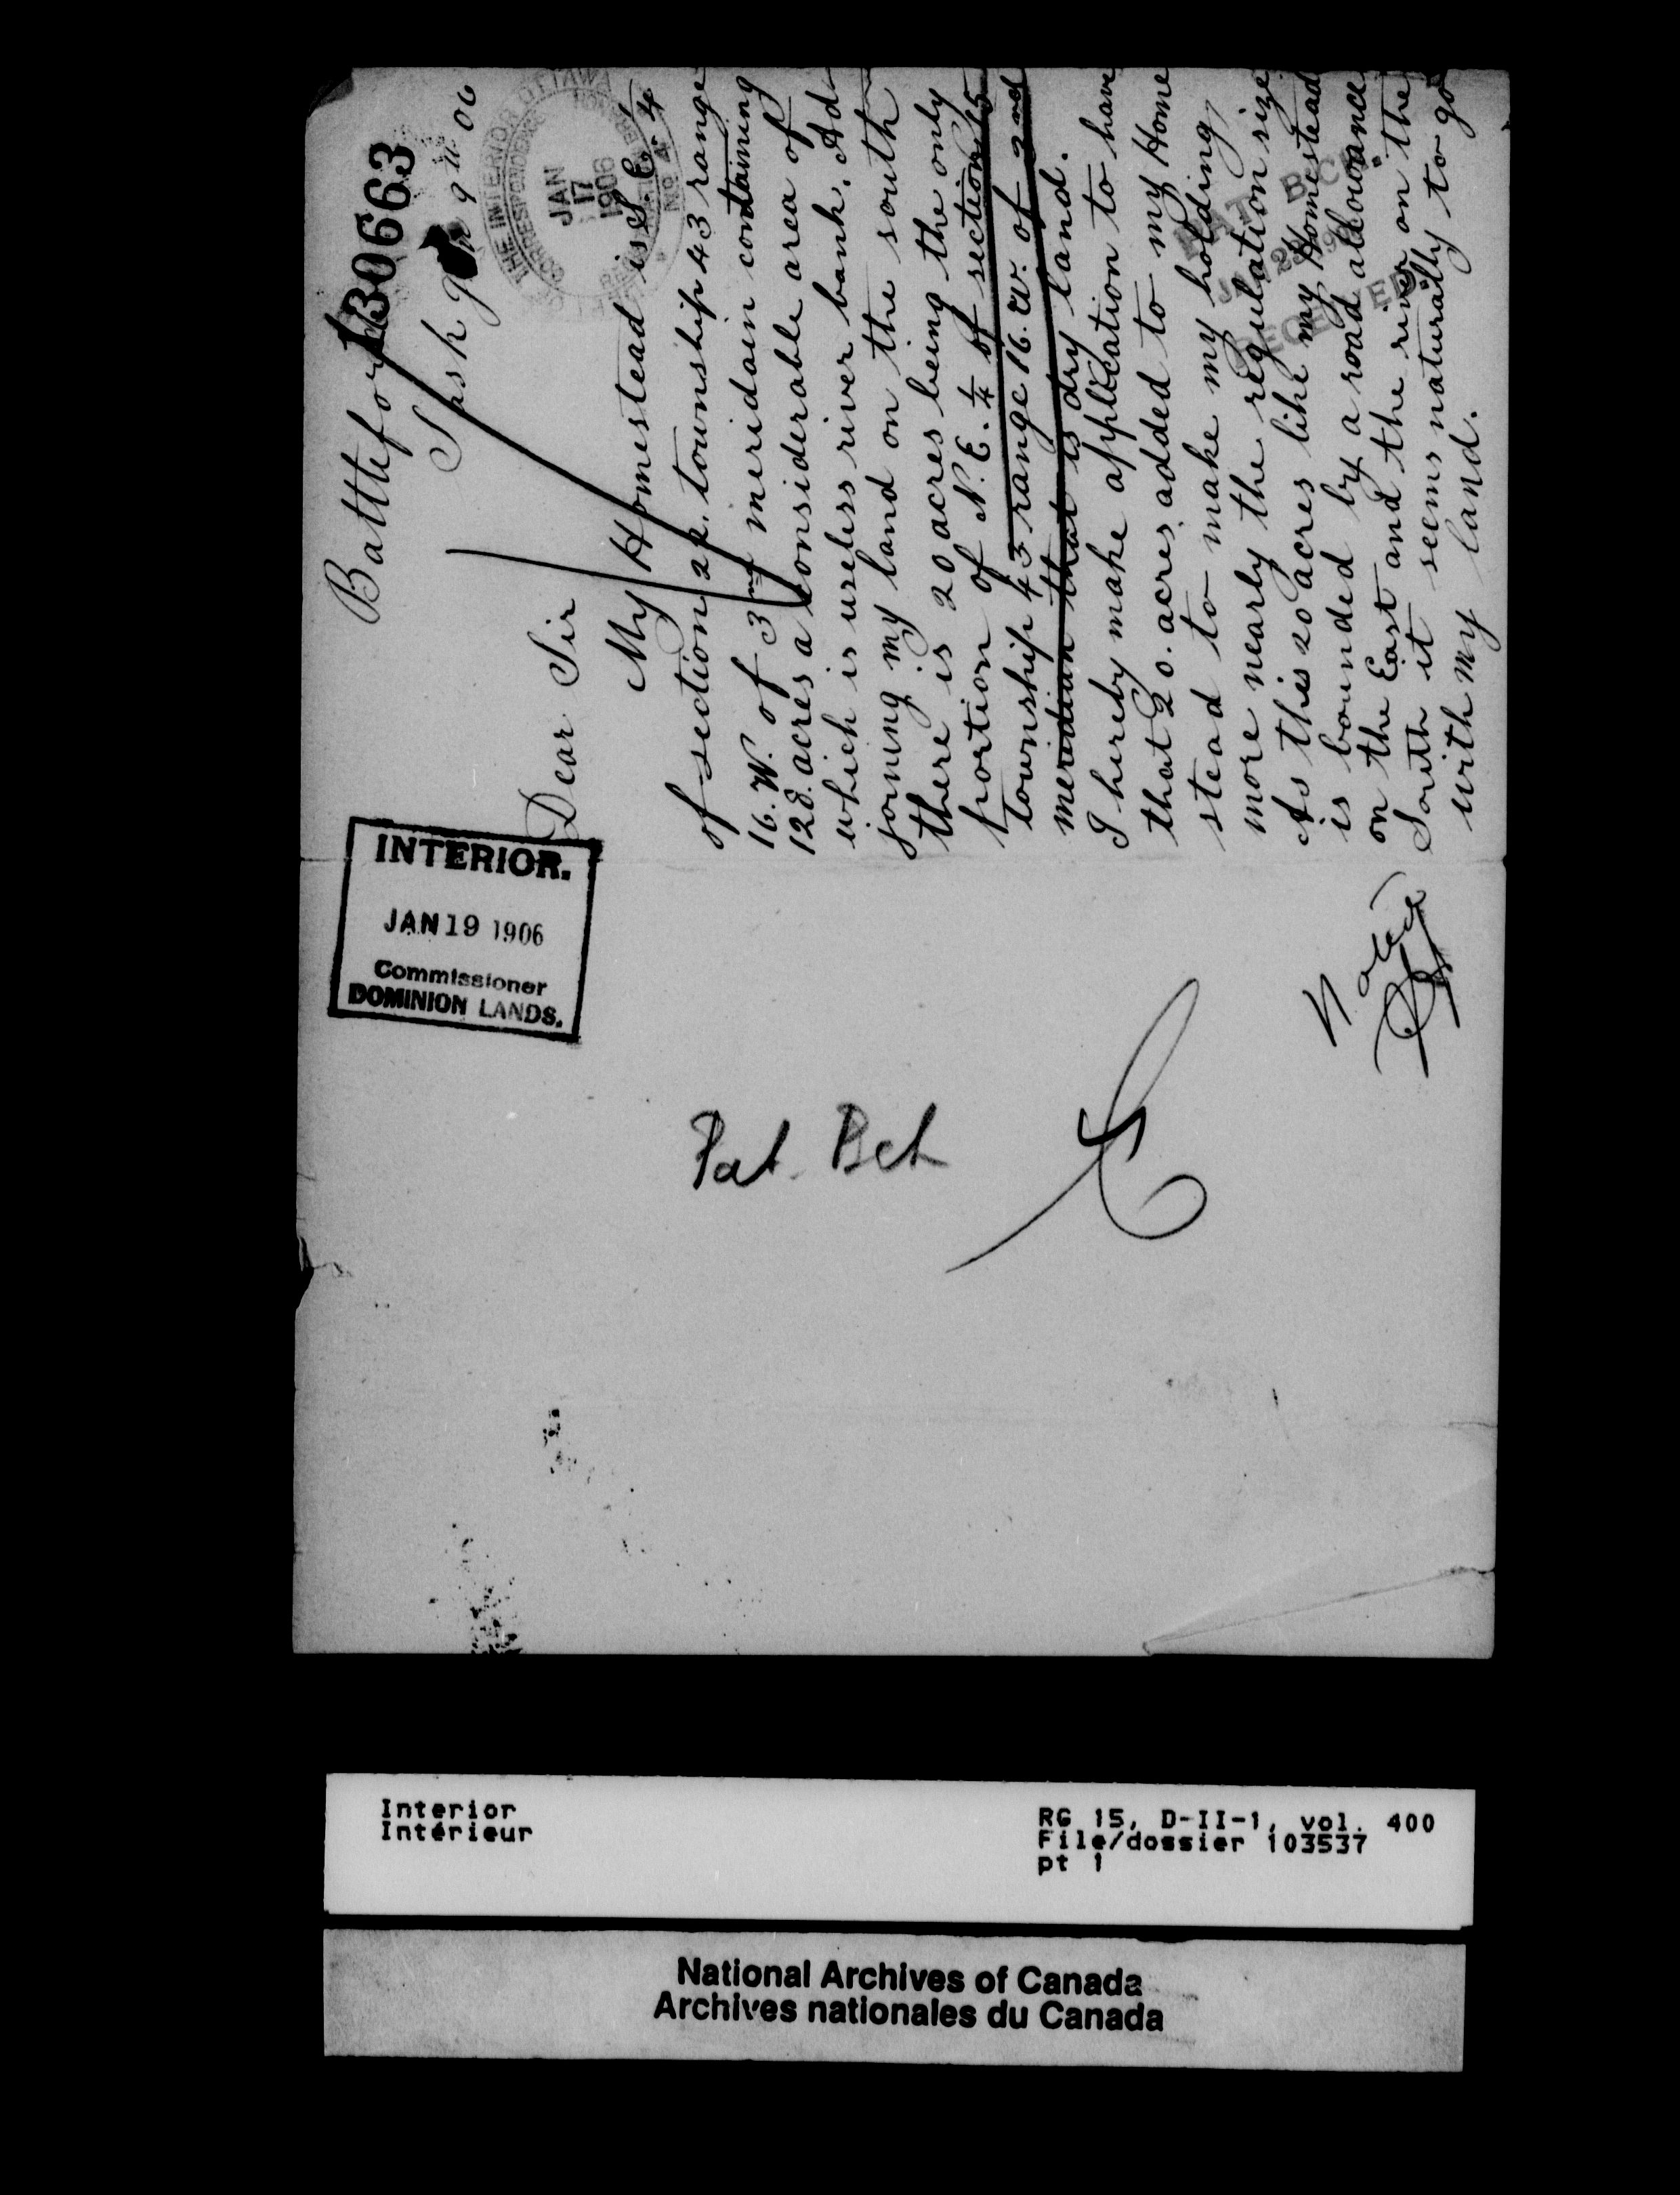 1130663
Battleford
Sask Jan 9th 06
THE INTERIOR OTTAWA
CORRESPONDENCE
JAN
17
1906
No 4
Dear Sir
My Homestead is S. E. 1/4
of section 22. township 43 range
16. W. of 3rd meridain containing
128. acres a considerable area of
which is useless river bank. Ad
joining my land on the south
there is 20 acres being the only
portion of N. E. 1/4 of section 15
township 43 range 16. W. of 2nd
meredian that is dry land.
I hereby make application to have
that 20. acres added to my Home
stead to make my holding,
more nearly the regulation size
As this 20 acres like my Homestead
is bounded by a road allowance
on the East and the river on the
South it seems naturally to go
with my land.
RECEIVED
INTERIOR.
JAN 19 1906
Commissioner
DOMINION LANDS.
Pat. Bch
Noted
Interior
Intérieur
RG 15, D-II-1, vol. 400
File/dossier 103537
pt 1
National Archives of Canada
Archives nationales du Canada